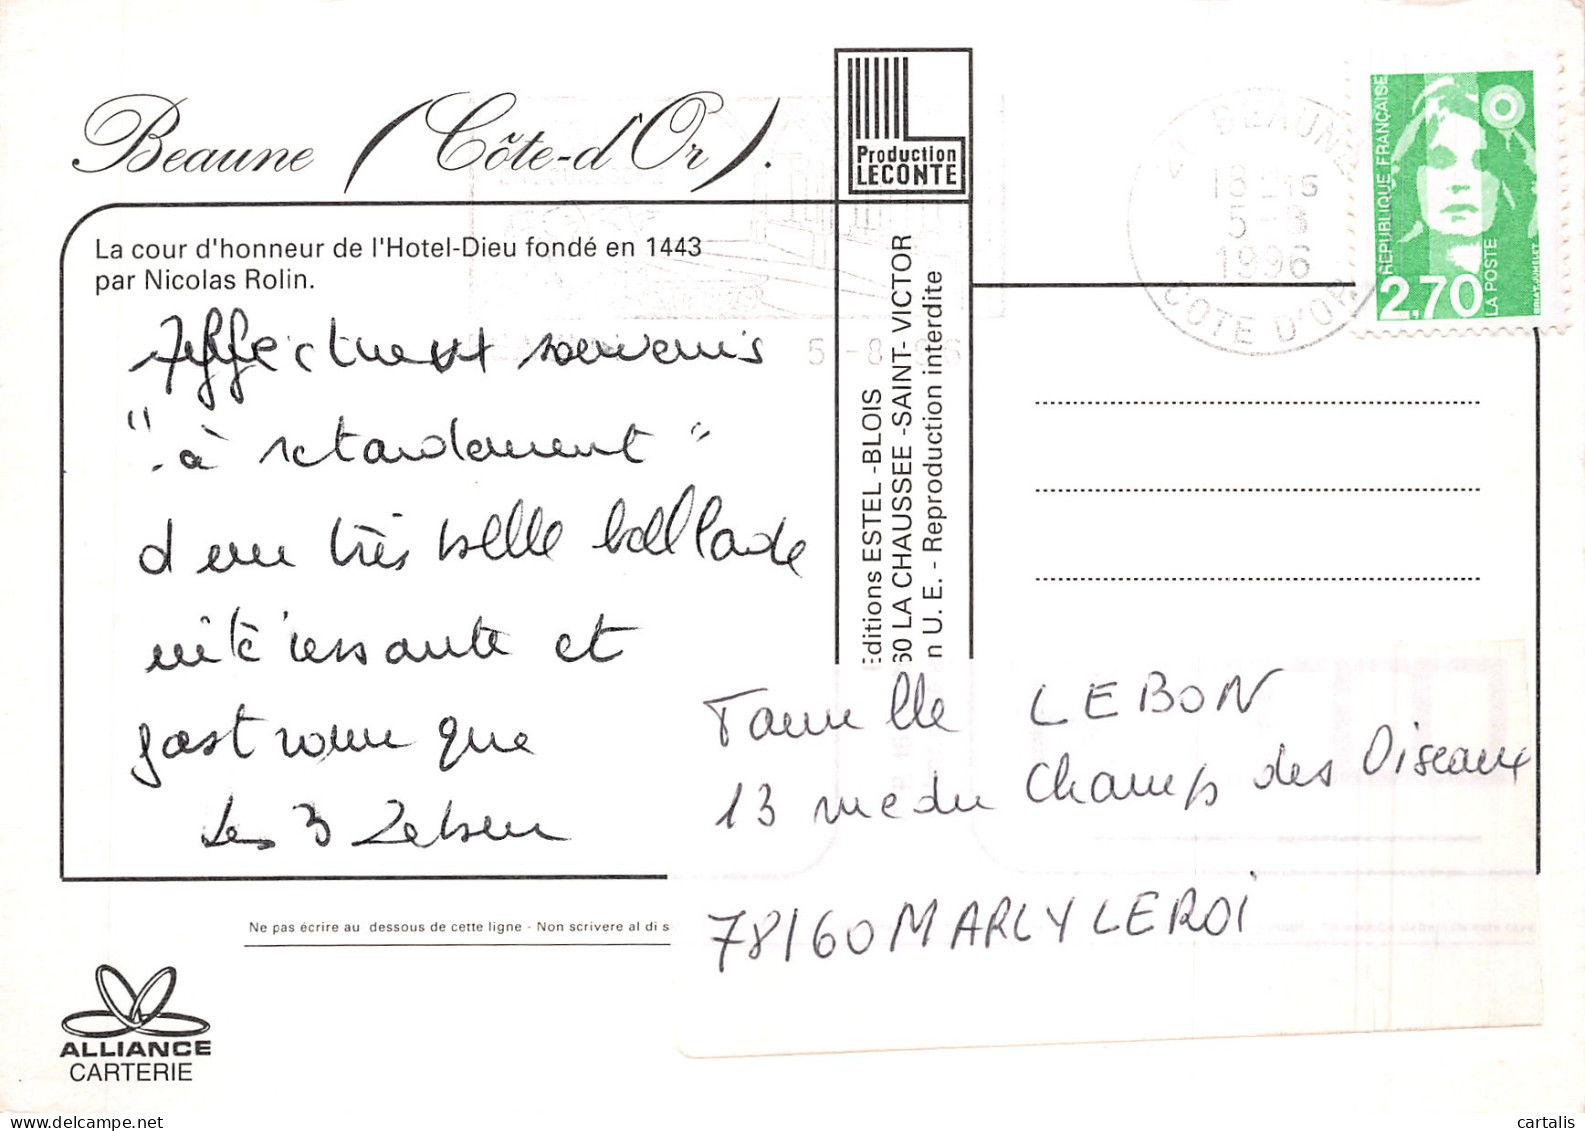 Beaune (Côte-d'Or).
La cour d'honneur de l'Hotel-Dieu fondé en 1443
par Nicolas Rolin.
Affectueux souvenirs
"à retardement"
d'une très belle ballade
intéressante et
gastronomique
Les 3
Production
LECONTE
Editions ESTEL -BLOIS
60 LA CHAUSSEE -SAINT- VICTOR
n U. E. - Reproduction interdite
21 BEAUNE
18 H15
5-8
1996
COTE D'OR
5 -8 96
REPUBLIQUE FRANÇAISE
2,70
LA POSTE
BRIAT-JUMELET
Famille LEBON
13 rue du Champ des Oiseaux
78160 MARLY LE ROI
Ne pas écrire au dessous de cette ligne - Non scrivere al di s
ALLIANCE
CARTERIE
cartalis